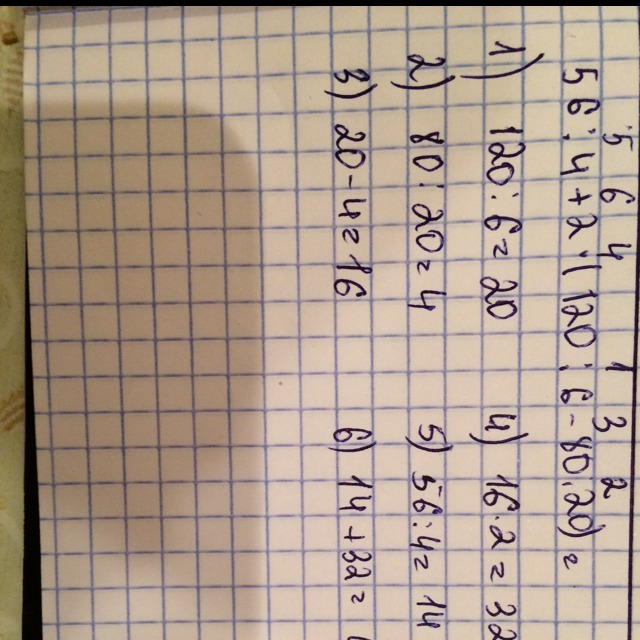 5 6 4 1 3 2
56:4+2·(120:6-80:20)=
1) 120:6=20
2) 80:20=4
3) 20-4=16
4) 16·2=32
5) 56:4=14
6) 14+32=